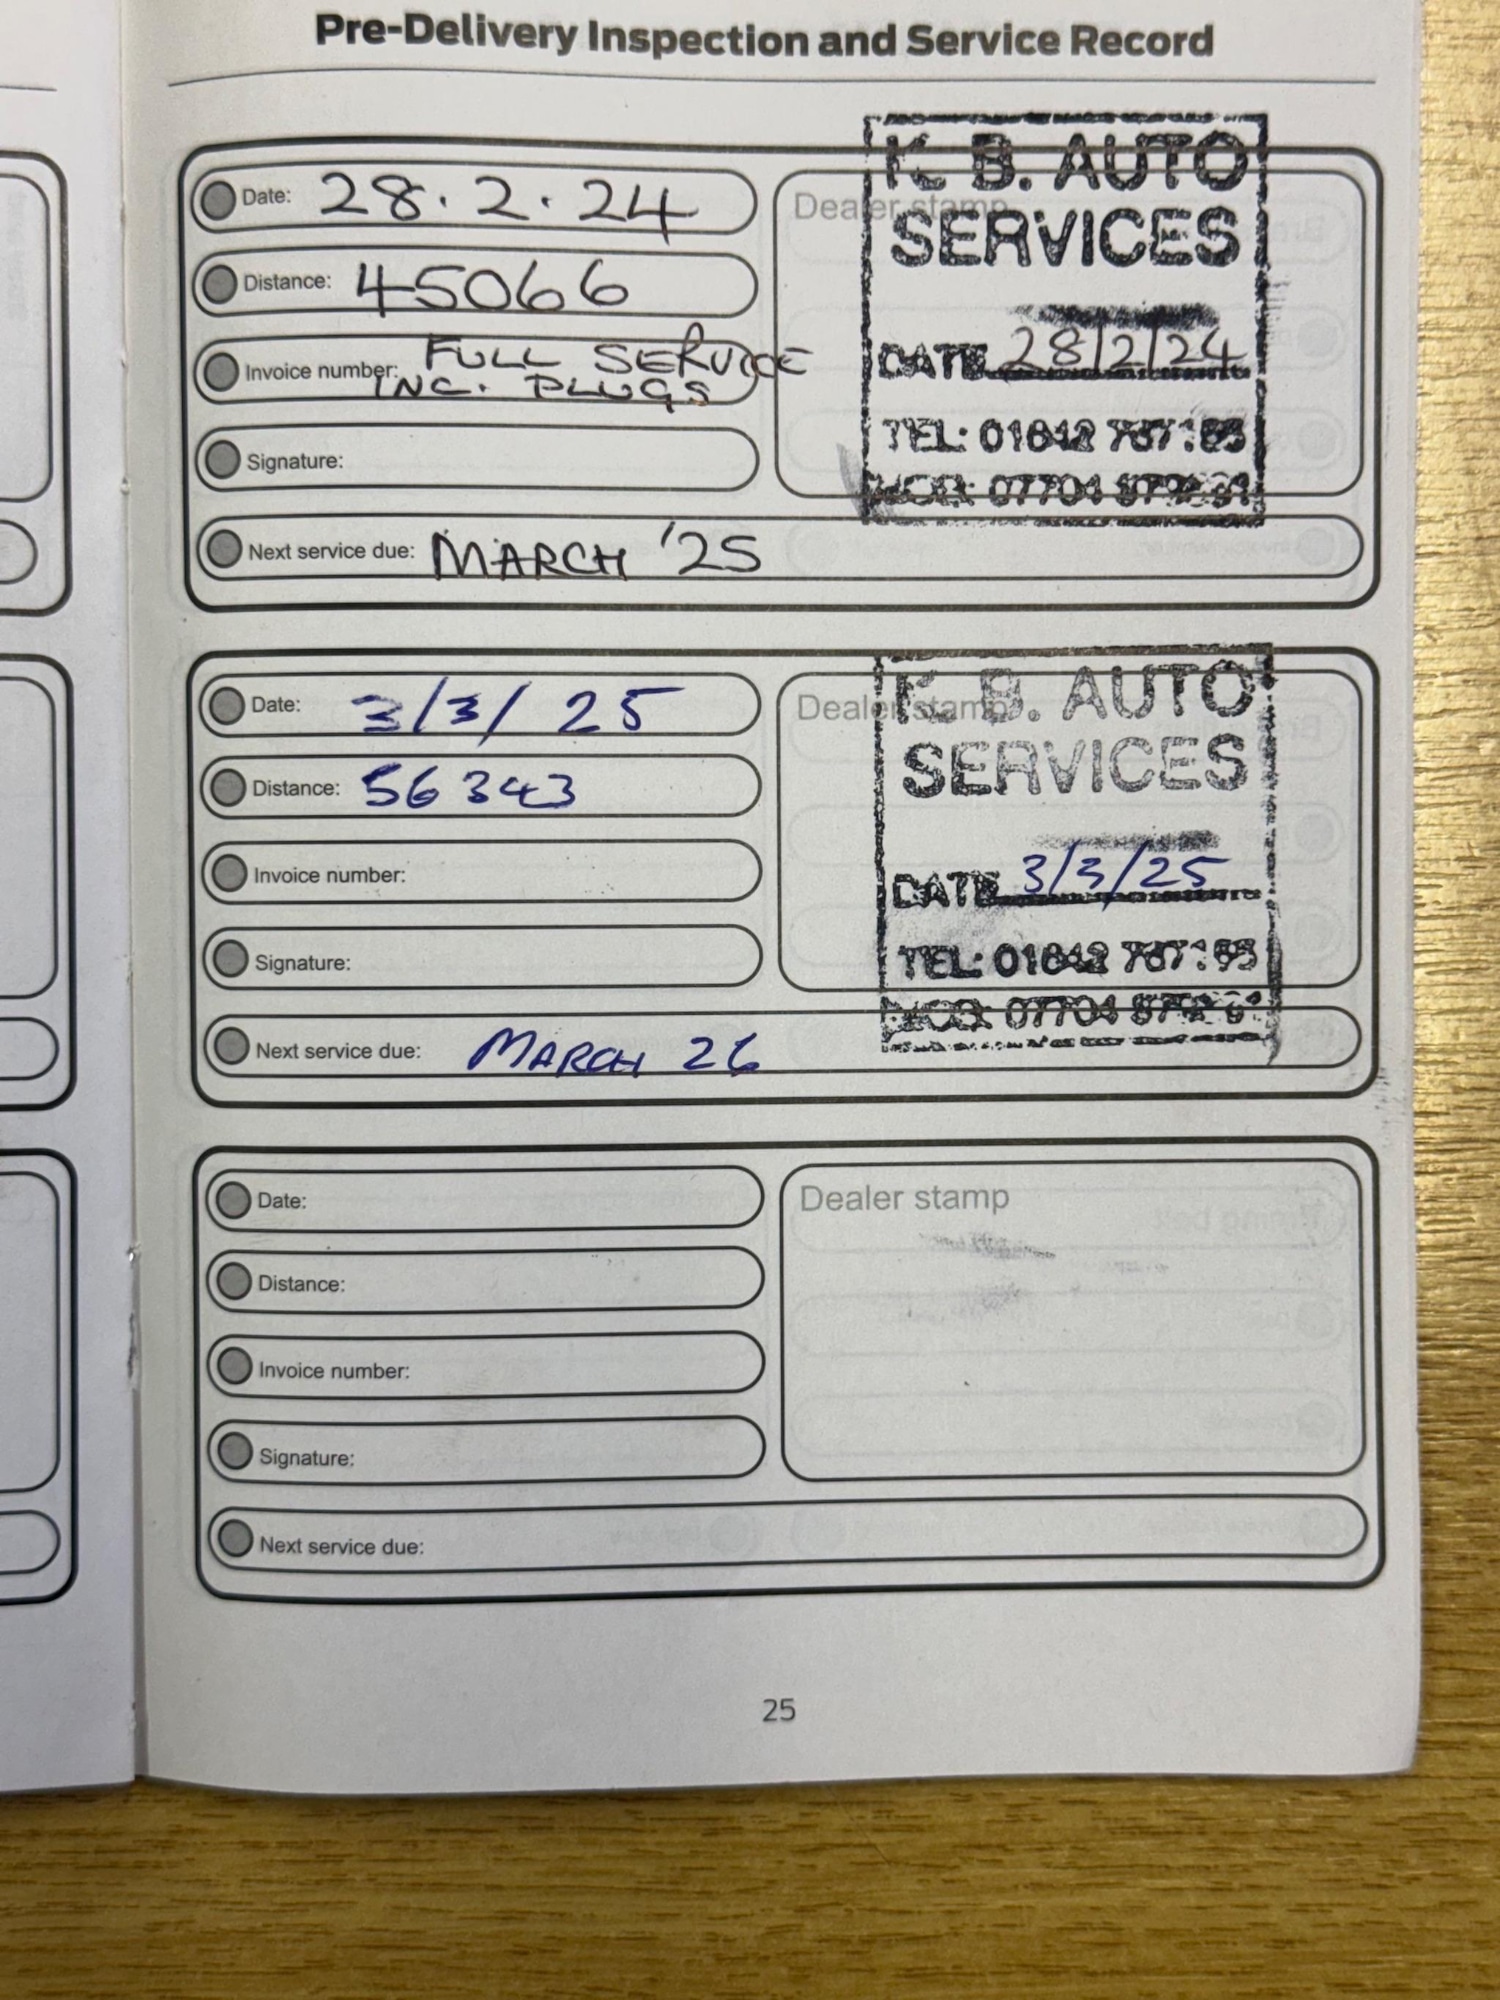 Pre-Delivery Inspection and Service Record
Date: 28.2.24
Distance: 45066
Invoice number: FULL SERVICE
INC. PLUGS
Signature:
Next service due: MARCH '25
Dealer stamp
K. B. AUTO
SERVICES
DATE 28/2/24
TEL: 01642
MOB: 07704
Date: 3/3/25
Distance: 56343
Invoice number:
Signature:
Next service due: MARCH 26
Dealer stamp
K. B. AUTO
SERVICES
DATE 3/3/25
TEL: 01642
MOB: 07704
Date:
Distance:
Invoice number:
Signature:
Next service due:
Dealer stamp
25